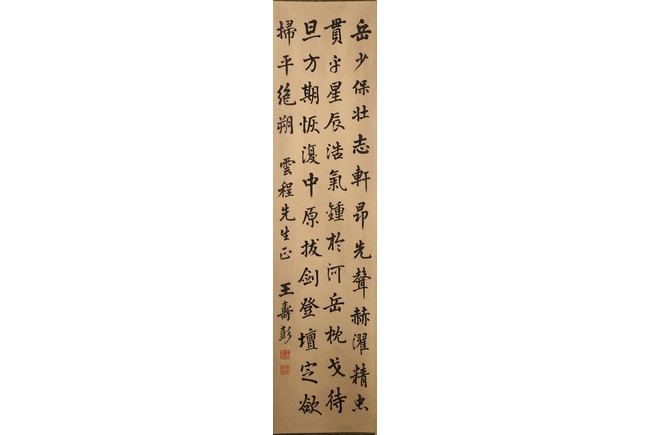 岳少保壯志軒昂先聲赫濯精忠
貫乎星辰浩氣鍾於河岳枕戈待
旦方期恢復中原拔劍登壇定欲
掃平絶朔 雲程先生正 王壽彭